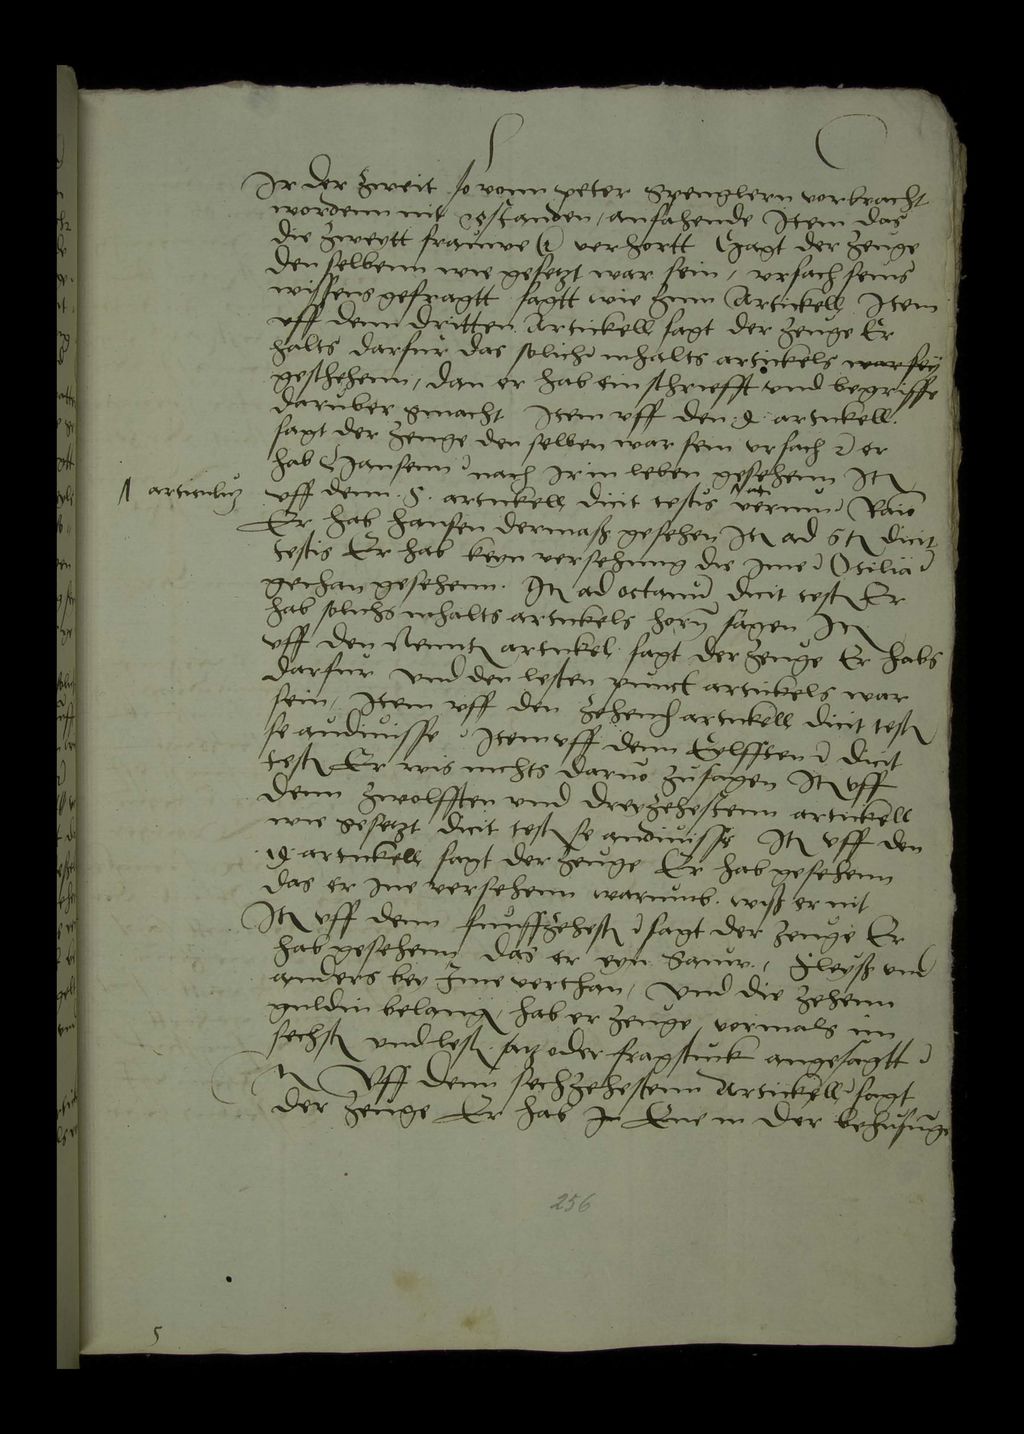 Ir der Zweit so vonn peter Spenglern vorbracht
wordenn nit gestanden, anfahende Item das
die Zweytt frauwe (ꝛ) verhortt Sagt der Zeuge
den selbenn wie gesetzt war sein, ursach seins
wissens gefragtt sagtt wie Zum Artickell Item
uff denn dritten Artickell sagt der Zeuge Er
halts darfur das solichs inhalts artickels war sey
geschehenn, dan er hab ein schriefft und begriffe
daruber gmacht Item uff den 4 artickell
sagt der Zeuge den selben war sein ursach er
hab Hansenn nach Irm leben gesehenn It
uff denn 5. artickell dicit testis verum
1 articulus
Er hab hansen dermaß gesehen It ad 6 It dicit
testis Er hab keyn versehung die Ime Otilia
gethan gesehenn. It ad octavum dicit test Er
hab solichs inhalts artickels horn sagen It
uff den Neunt artickel sagt der Zeuge Er habs
darfur und den lesten punct artickels war
sein, Item uff den Zehend artickell dicit test
se audivisse Item uff denn Eylfften dicit
test Er wis nichts darvo zusagen It uff
denn Zwolfften und dreyzehestenn artickell
wie gesetzt dicit test se audivisse It uff den
14 artickell sagt der Zeuge Er hab gesehenn
das er Ine versehenn warumb. wiß er nit
It uff denn funffzehest sagt der Zeuge Er
hab gesehenn das er eyn Sauw, fleysch und
anders bey Ime verthan, Und die Zehenn
guldin belang, hab er Zeuge, vormals im
sechst und lest satz oder fragstuck angesagtt
It Uff denn sechzehestenn Artickell sagt
der Zeuge Er hab In Ene in der behusunge
256
5